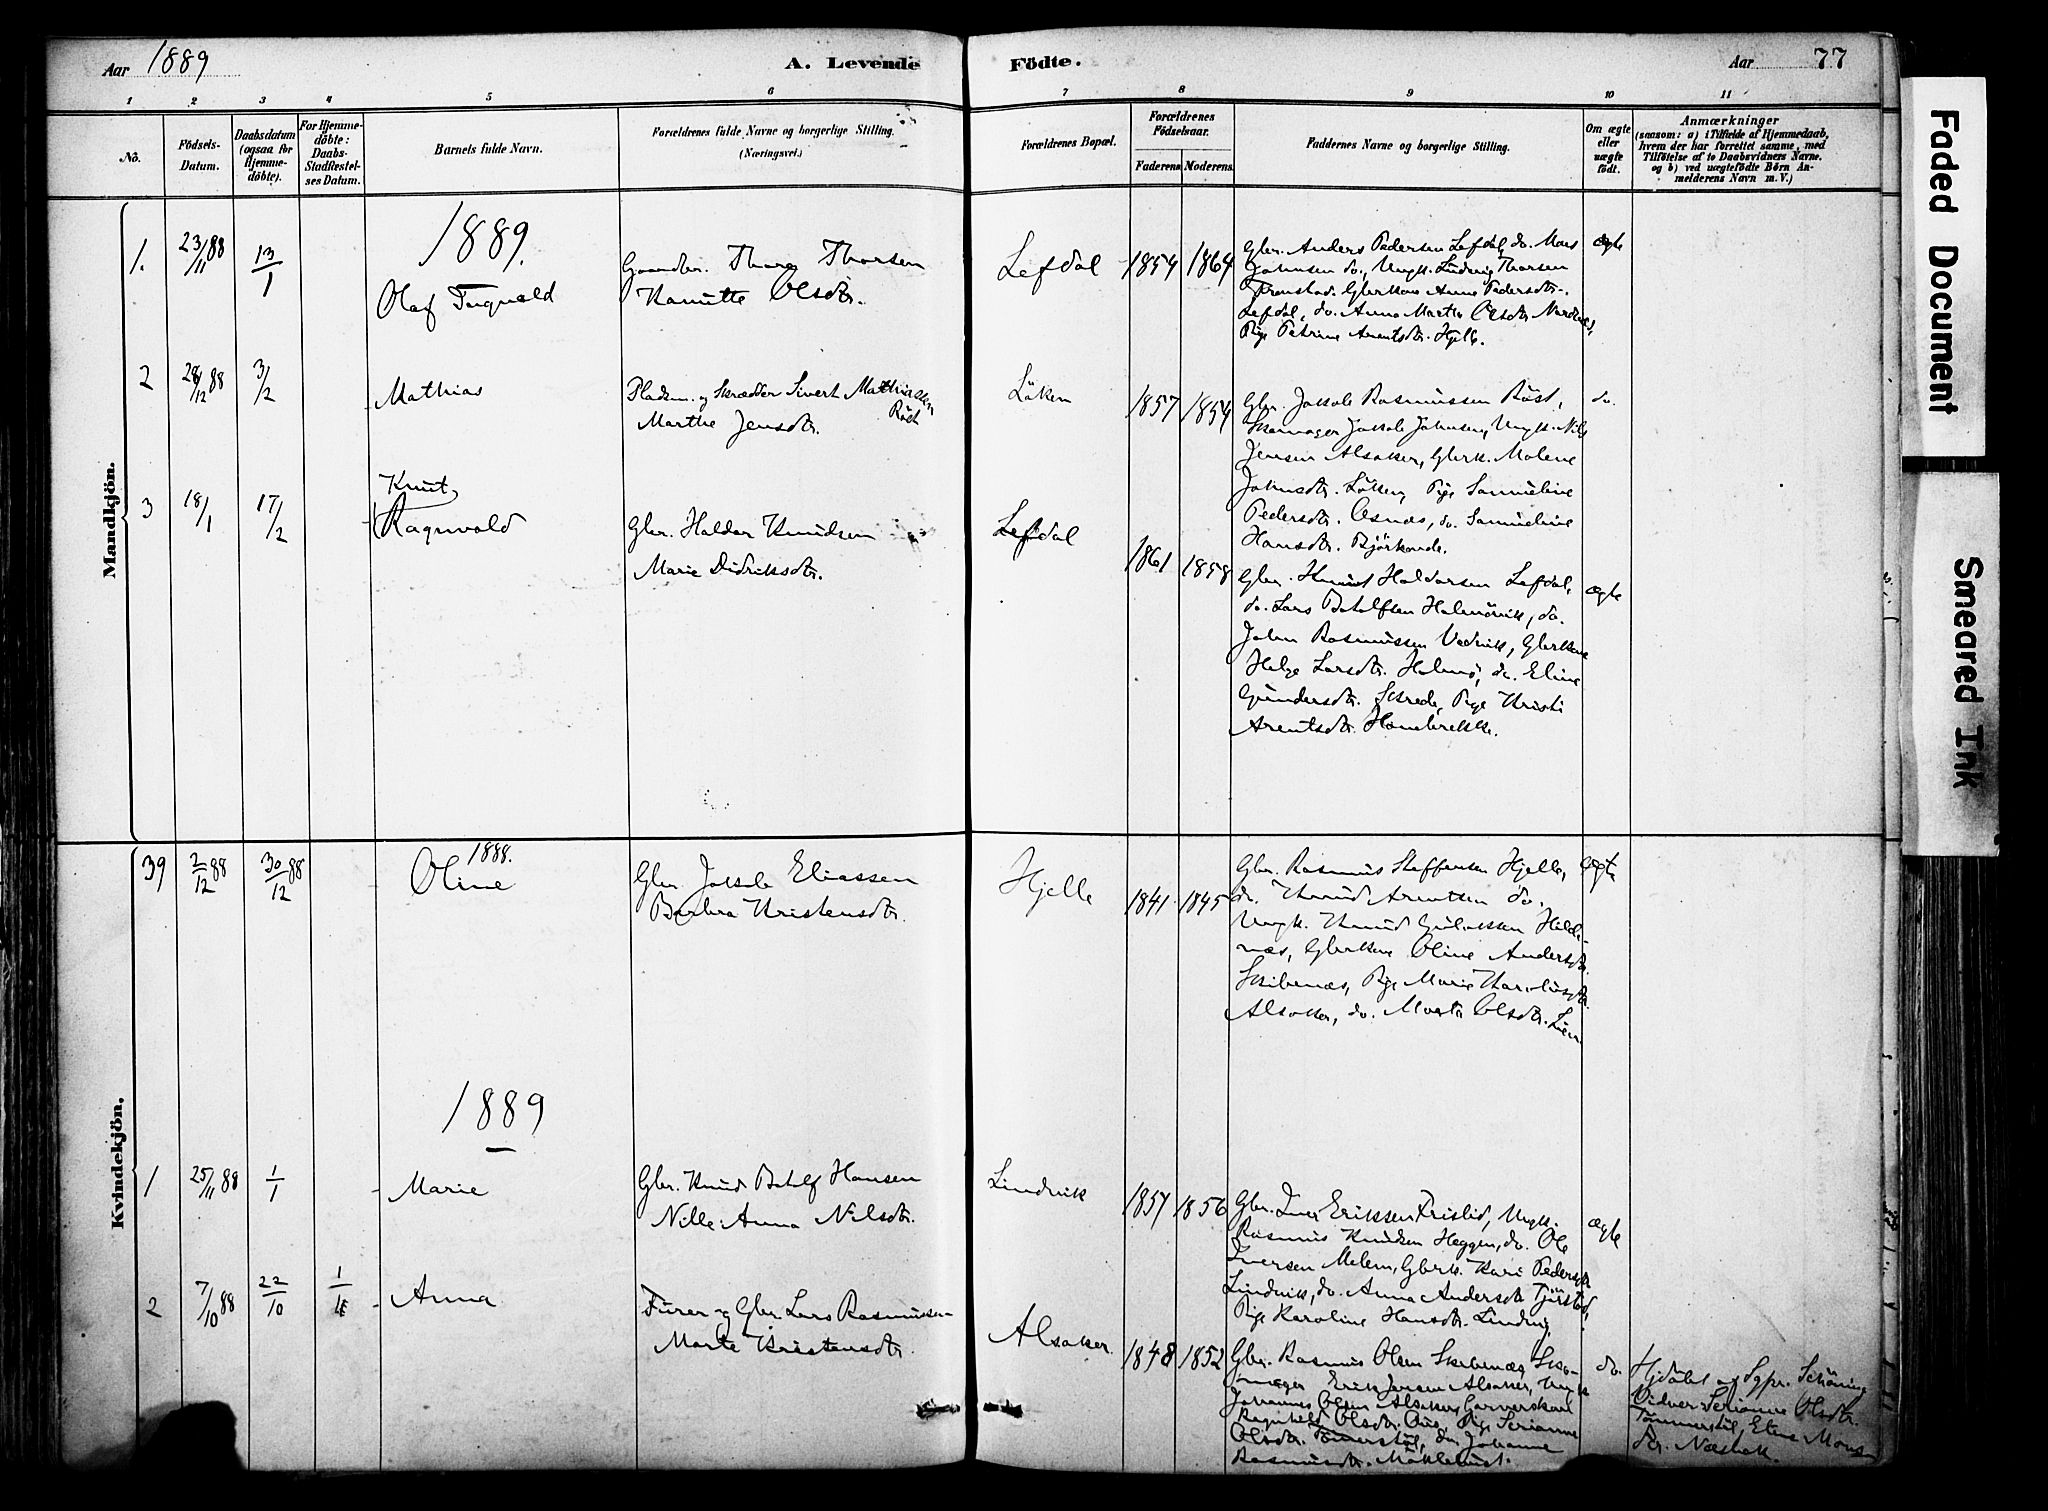 Aar 1889
A. Levende
Födte.
Aar
77
1 2 3 4 5 6 7 8 9 10 11
No.
Födsels-
Datum.
Daabsdatum
(ogsaa for
Hjemme-
döbte).
For Hjemme-
döbte:
Daabs-
Stadfestel-
ses Datum.
Barnets fulde Navn.
Forældrenes fulde Navne og borgerlige Stilling.
(Næringsvei.)
Forældrenes Bopæl.
Forældrenes
Födselsaar.
Faderens Moderens
Faddernes Navne og borgerlige Stilling.
Om ægte
eller
uægte
födt.
Anmærkninger
(saasom: a) i Tilfælde af Hjemmedaab,
hvem der har forrettet samme, med
Tilföielse af to Daabsvidners Navne.
og b) ved uægtefödte Börn An-
melderens Navn m. V.)
Mandkjön.
1889.
1. 23/11 88 13/1
Olaf
Thore Thorsen
Olsdtr.
Lefdal
1854 1864
Gbr. Anders Pedersen Lefdal, do. Mons
Johnsen do., Ungk. Ludvig Thorsen
Gbrkone Anne Pedersdtr.
Lefdal, do. Anna Marthe Olsdtr.
Pige Petrine Arentsdtr. Hjelle.
ægte
2 28/12 88 3/2
Mathias
Pladsm. og Skrædder Sivert Mathiassen
Marthe Jensdtr.
Löken
1857 1854
Gbr. Jakob Rasmussen Röst,
Skomager Jakob Johnsen, Ungk. Nils
Jensen Alsaker, Gbrk. Malene
Johnsdtr. Löken, Pige Samueline
Pedersdtr. Osnæs, do. Samueline
Hansdtr.
do.
3 18/1 17/2
Knut
Ragnvald
Gbr. Haldor Knudsen
Marie Didriksdtr.
Lefdal
1861 1858
Gbr. Knud Haldorsen Lefdal,
do. Lars Botolfsen Holmövik, do.
John Rasmussen Vedvik, Gbrkone
Helge Larsdtr. Holmö, do. Eline
Gundersdtr. Skrede, Pige Kristi
Arentsdtr.
ægte
Kvindekjön.
1888.
39 2/12 88 30/12 88
Oline
Gbr. Jakob Eliassen
Barbra Kristensdtr.
Hjelle
1841 1845
Gbr. Rasmus Steffensen Hjelle,
do. Knud Arentsen do.
Ungk. Knud
Gbrkone Oline Andersdtr.
Skibenæs, Pige Marie
Alsaker, do. Marte Olsdtr. Lien
ægte
1889
1 25/11 88 1/1
Marie
Gbr. Knud Botolf Hansen
Nille Anna Nilsdtr.
Lindvik
1857 1856
Gbr. Iver Eriksen Frislid, Ungk.
Rasmus Knudsen Heggen, do. Ole
Iversen Melem, Gbrk. Kari Pedersdtr.
Lindvik, do. Anna Andersdtr.
Pige Karoline Hansdtr. Lindvig.
ægte
2 7/10 88 22/10
Anna
Furer og Gbr. Lars Rasmussen
Marte Kristensdtr.
Alsaker.
1848 1852
Gbr. Rasmus Olsen Skibenæs, Sko-
mager Erik Jensen Alsaker, Ungk.
Johannes Olsen Alsaker, Garverskone
Ragnhild Olsdtr. Pige Serianne
Olsdtr. Tömmerstöl, do. Johanne
Rasmusdtr. Maklebust.
do.
Hjdöbt af Sgpr. Schöning
Vidner: Serianne Olsdtr.
Tömmerstöl, Eline Mons-
dtr.
Faded Document
Smeared Ink